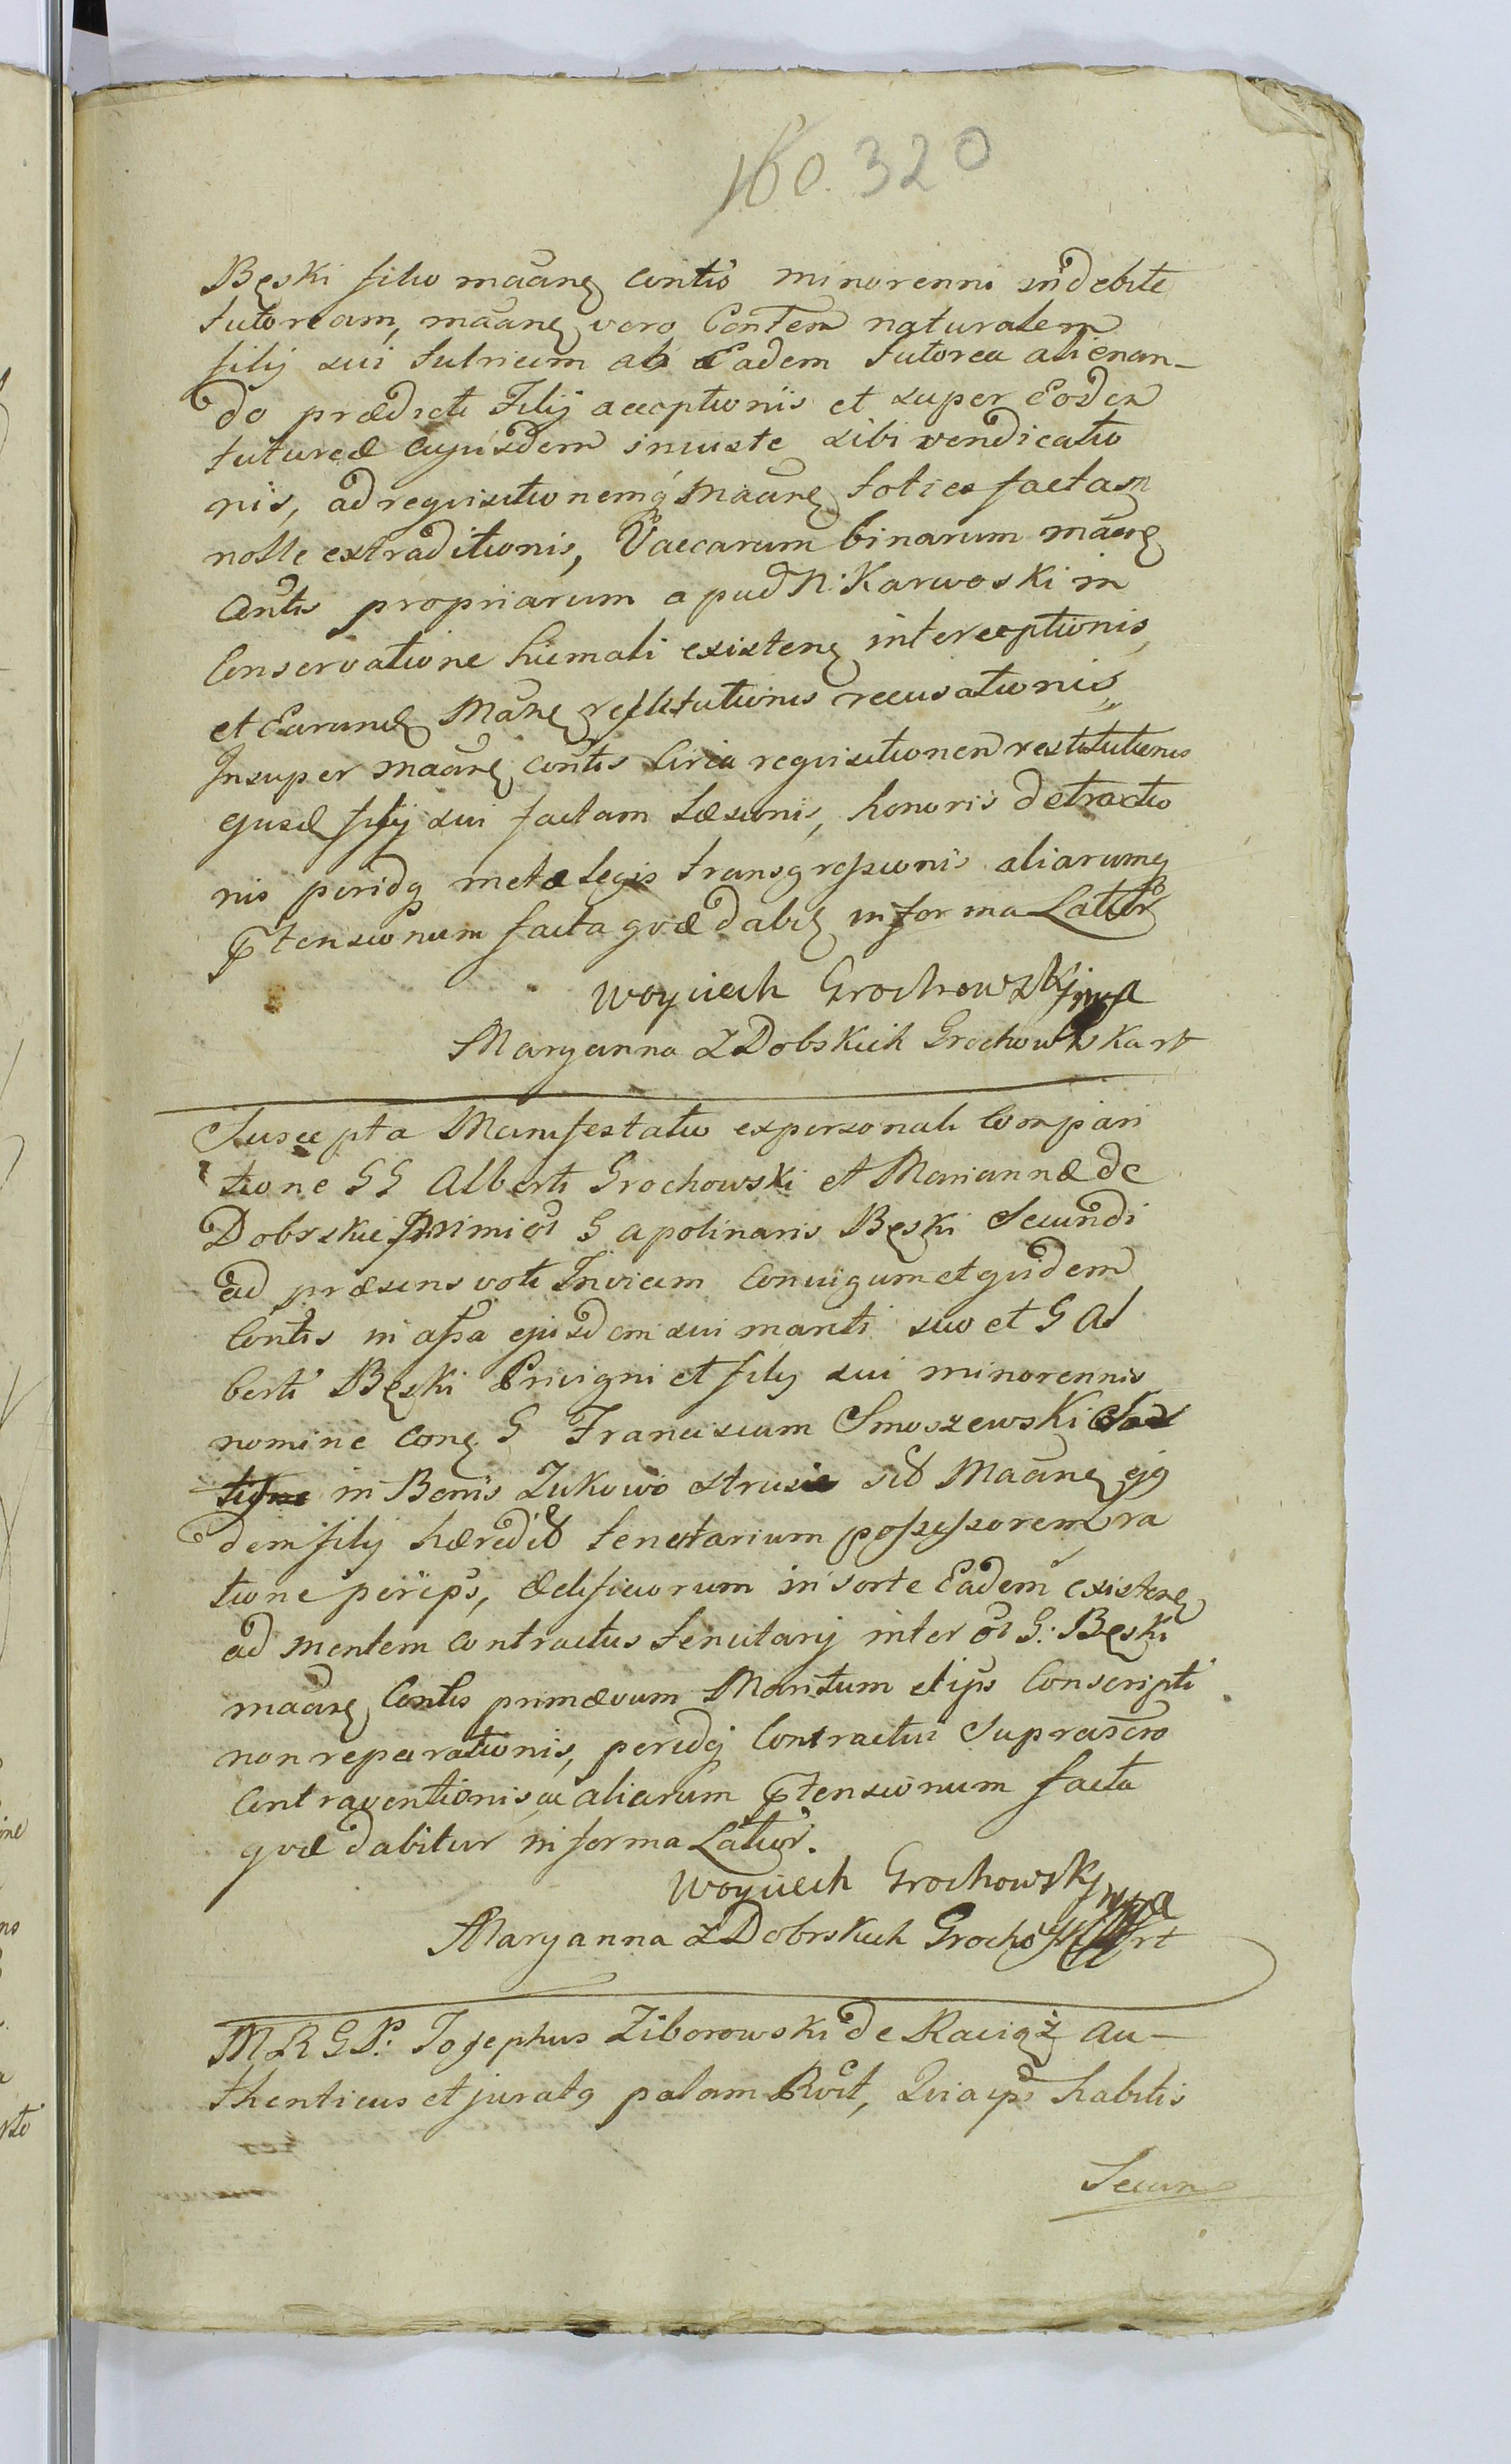 160. 320
Bęski filio maãnę contis minorenni indebite
tutoream, maãnę vero Contem naturalem
filij sui tutricem ab Eadem tutorea alienan-
do prædicti Filij acceptionis et super Eodem
tutureæ ejusdem iniuste sibi vendicatio
nis, ad requisitionemq́ Maãnę toties factam
nolle extraditionis, Vaccarum binarum maãnę
Contis propriarum apud N: Karwoski in
Conservatione hiemali existenę interceptionis,
et Earundę Maãnę restitutionis recusationis,
Insuper maãnę contis circa requisitionem restitutionis
ejusd filij sui factam Læsionis, honoris detractio
nis peridq metæ legis transgressionis aliarumq
ptensionum facta qvæ dabitę in forma Latior
Woyciech Grochowski mpa
Maryanna z Dobskich Grochowska rt
Suscepta Manifestatio ex personali Compari
tione GG Alberti Grochowski et Mariannæ de
Dobrskie Primi ol G Apolinaris Bęski Secundi
ad præsens voti Invicem Conjugum et qvidem
Contis in assa ejusdem sui mariti suo et G Al
berti Bęski Privigni et filij sui minorennis
nomine Conę G Franciscum Smoszewski
in Bonis Zukowo strusie sit Maãnę ejq
dem filij hæredit tenutarium possessorem ra
tione periips, ædificiorum in sorte Eadem existenę
ad mentem Contractus tenutarij inter ol G: Bęski
maãnę Contis primævum Maritum et ips Conscripti
non reparationis, peridq Contractui Suprascro
Contraventionis ac aliarum ptensionum facta
qvæ dabitur in forma Latior.
Woyciech Grochowski mpa
Maryanna z Dobrskich rt
MRGD: Josephus Ziborowski de Raciąż Au-
thenticus et juratq palam Rvit, Qvia ips habitis
Secun